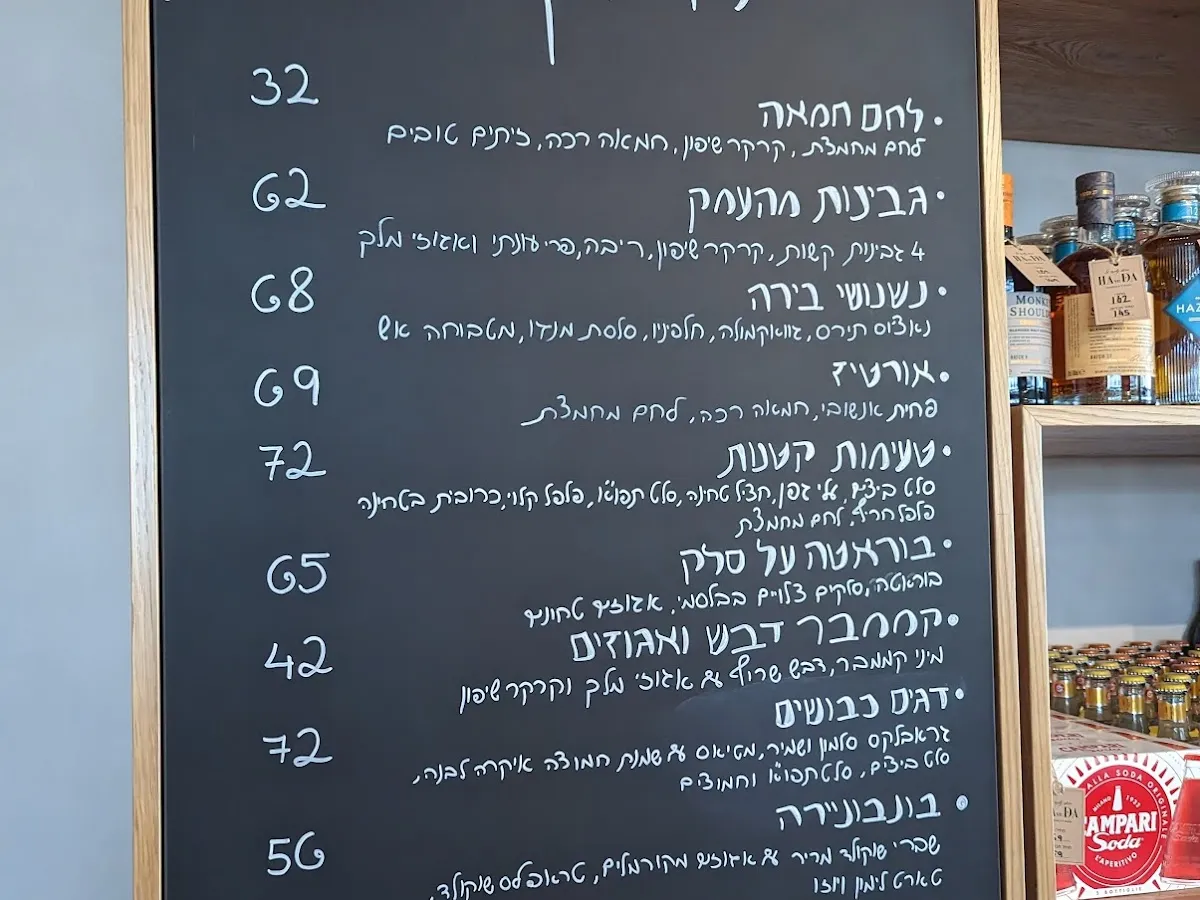 32
• לחם חמאה
לחם מחמצת, קרקר שיפון, חמאה רכה, זיתים טובים
62
• גבינות מהעמק
4 גבינות קשות, קרקר שיפון, ריבה, פרי עונתי ואגוזי מלך
68
• נשנושי בירה
נאצ'וס תירס, גוואקמולה, חלפיניו, סלסת מנגו, מטבוחה אש
69
• אורטיז
פחית אנשובי, חמאה רכה, לחם מחמצת
72
• טעימות קטנות
סלט ביצים, עלי גפן, חציל טחינה, סלט תפוא"ד, פלפל קלוי, כרובית בטחינה
פלפל חריף, לחם מחמצת
65
• בוראטה על סלק
בוראטה, סלקים צלויים בבלסמי, אגוזים טחונים
42
• קממבר דבש ואגוזים
מיני קממבר, דבש שרוף עם אגוזי מלך וקרקר שיפון
72
• דגים כבושים
גראבלקס סלמון ושמיר, מטיאס עם שמנת חמוצה איקרה לבנה,
סלט ביצים, סלט תפוא"ד וחמוצים
56
• בונבוניירה
שברי שוקולד מריר עם אגוזים מקורמלים, טראפלס שוקולד,
טארט לימון ויוזו
HA DA
MONKEY
SHOULD
HA DA
162
145
BATCH 27
HAZ
ALLA SODA ORIGINALE
MILANO 1932
CAMPARI
Soda
L'APERITIVO
5 BOTTIGLIE